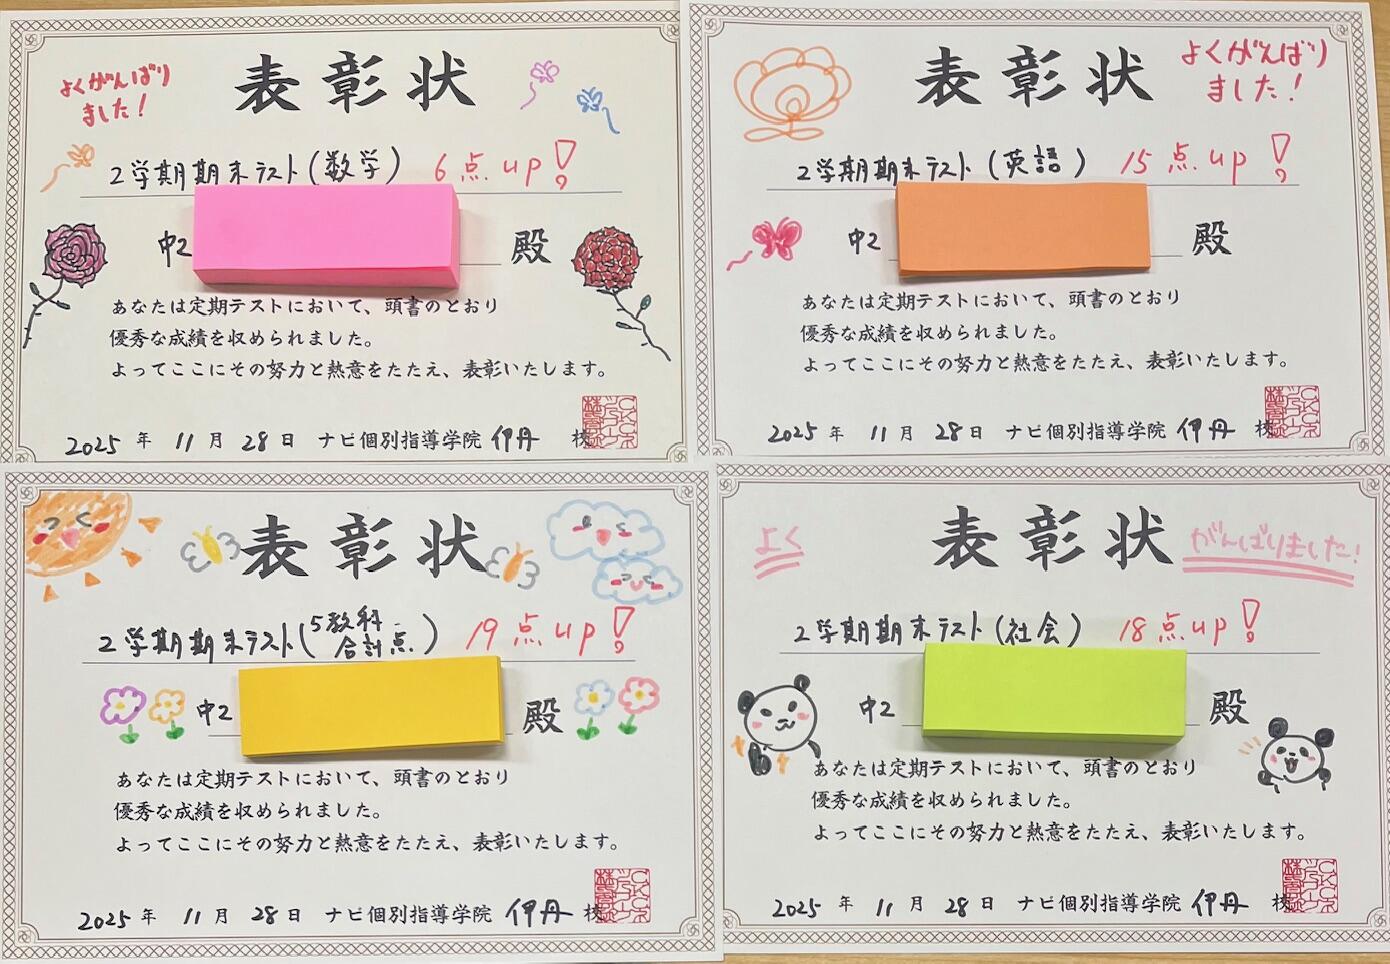 よくがんばり
ました!
表彰状
2学期期末テスト(数学) 6点up!
中2 殿
あなたは定期テストにおいて、頭書のとおり
優秀な成績を収められました。
よってここにその努力と熱意をたたえ、表彰いたします。
2025年11月28日 ナビ個別指導学院 伊丹 校
表彰状
よくがんばり
ました!
2学期期末テスト(英語) 15点up!
中2 殿
あなたは定期テストにおいて、頭書のとおり
優秀な成績を収められました。
よってここにその努力と熱意をたたえ、表彰いたします。
2025年11月28日 ナビ個別指導学院 伊丹 校
表彰状
2学期期末テスト(5教科合計点) 19点up!
中2 殿
あなたは定期テストにおいて、頭書のとおり
優秀な成績を収められました。
よってここにその努力と熱意をたたえ、表彰いたします。
2025年11月28日 ナビ個別指導学院 伊丹 校
よく 表彰状 がんばりました!
2学期期末テスト(社会) 18点up!
中2 殿
あなたは定期テストにおいて、頭書のとおり
優秀な成績を収められました。
よってここにその努力と熱意をたたえ、表彰いたします。
2025年11月28日 ナビ個別指導学院 伊丹 校